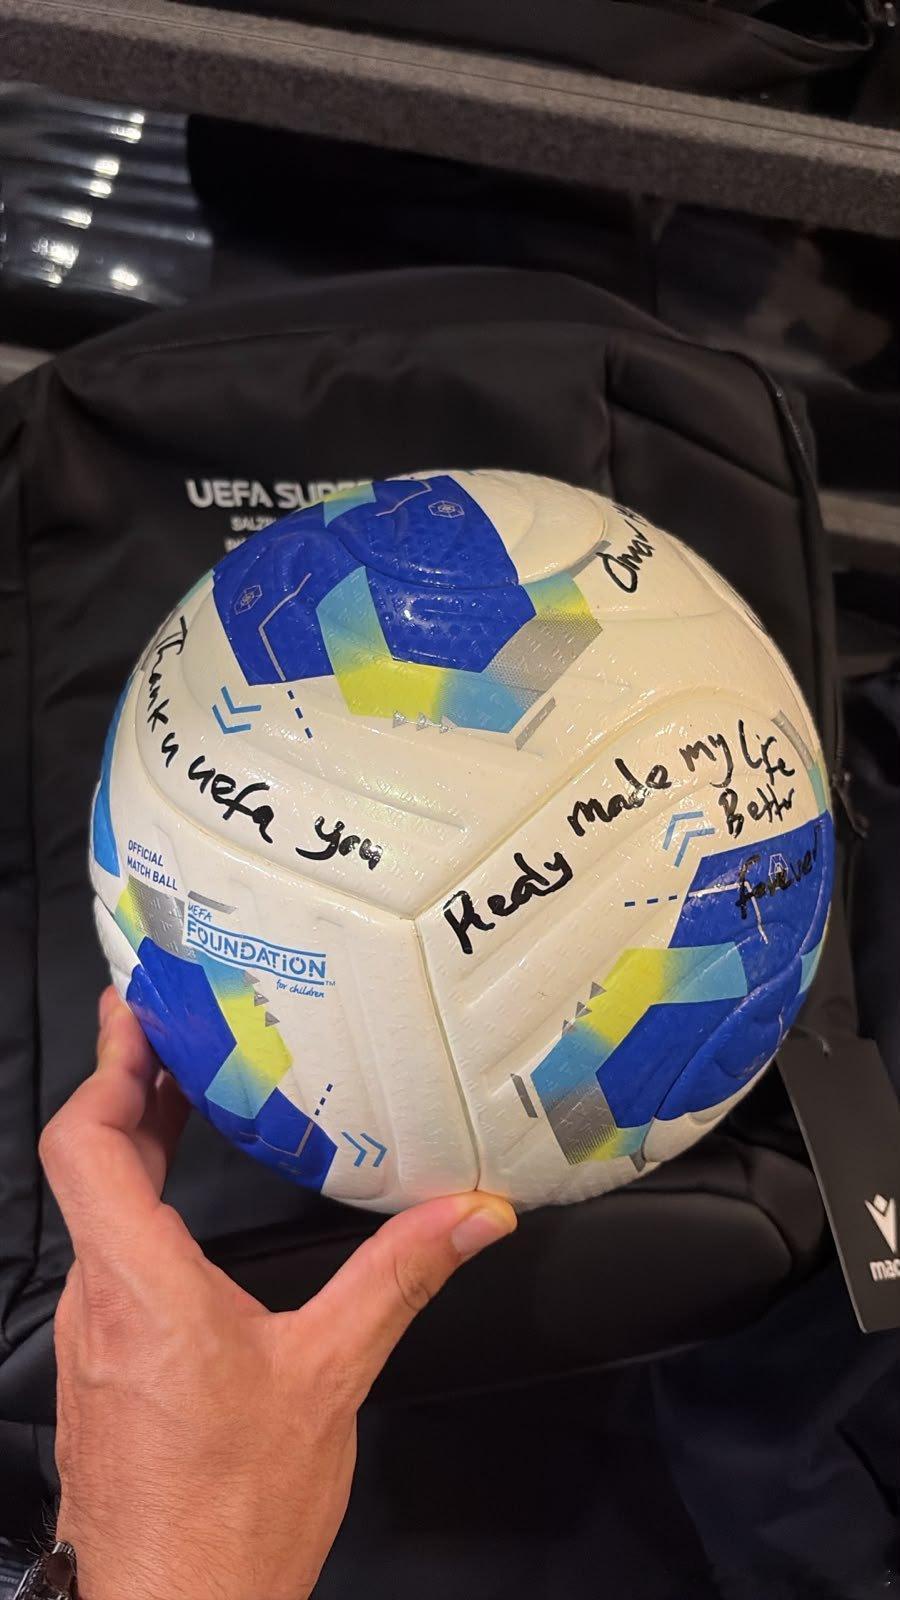 UEFA SUPE
Omar
Thank u uefa you
Realy made my Life
Better
Forever
OFFICIAL
MATCH BALL
UEFA
FOUNDATION™
for children
mac